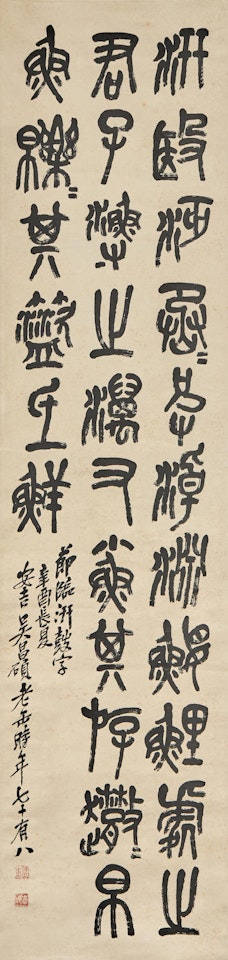 汧殹沔丞=皮淖淵鰋鯉處之
君子漁=之澫又小魚其斿帛
魚皪=其籃氐鮮
節臨汧鼓字
辛酉長夏
安吉吳昌碩老缶時年七十有八